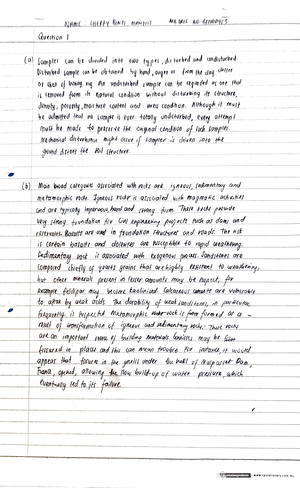 NAME
Question 1
(a) Samples can be divided into two types, disturbed and undisturbed
Disturbed sample can be obtained by hand, auger or from the
or An undisturbed sample can be regarded as one that
is removed from its natural condition without disturbing its structure,
density, porosity, moisture content and stress condition. Although it must
be admitted that no sample is ever totally undisturbed, every attempt
must be made to preserve the original condition of such samples.
Mechanical disturbance might occur if sampler is driven into the
ground the soil structure.
(b) Main broad categories associated with rocks are igneous, sedimentary and
metamorphic rocks. Igneous rocks is associated with magmatic activities
and are typically impervious, hard and strong firm. These rocks provide
very strong foundation for civil engineering projects such as dams and
reservoirs. Basalts are used in foundation structures and roads. The risk
is certain basalts and dolerites are susceptible to rapid weathering.
Sedimentary rock is associated with exogenous process. Sandstones are
composed chiefly of quartz grains that are highly resistant to weathering,
but other minerals present in lesser amounts may be suspect, for
example feldspar may become kaolinised. Calcareous cements are vulnerable
to attack by weak acids. The durability of weak sandstones, in particular
frequently is suspected. Metamorphic rock is form formed as a
result of transformation of igneous and sedimentary rocks. These rocks
are an important source of building materials. Gneisses may be
fissured in places and this can mean trouble. For instance, it would
appear that fissures in the gneiss under the heel of Malpasset Dam,
France, opened, allowing the slow build-up of water pressure, which
eventually led to its failure.